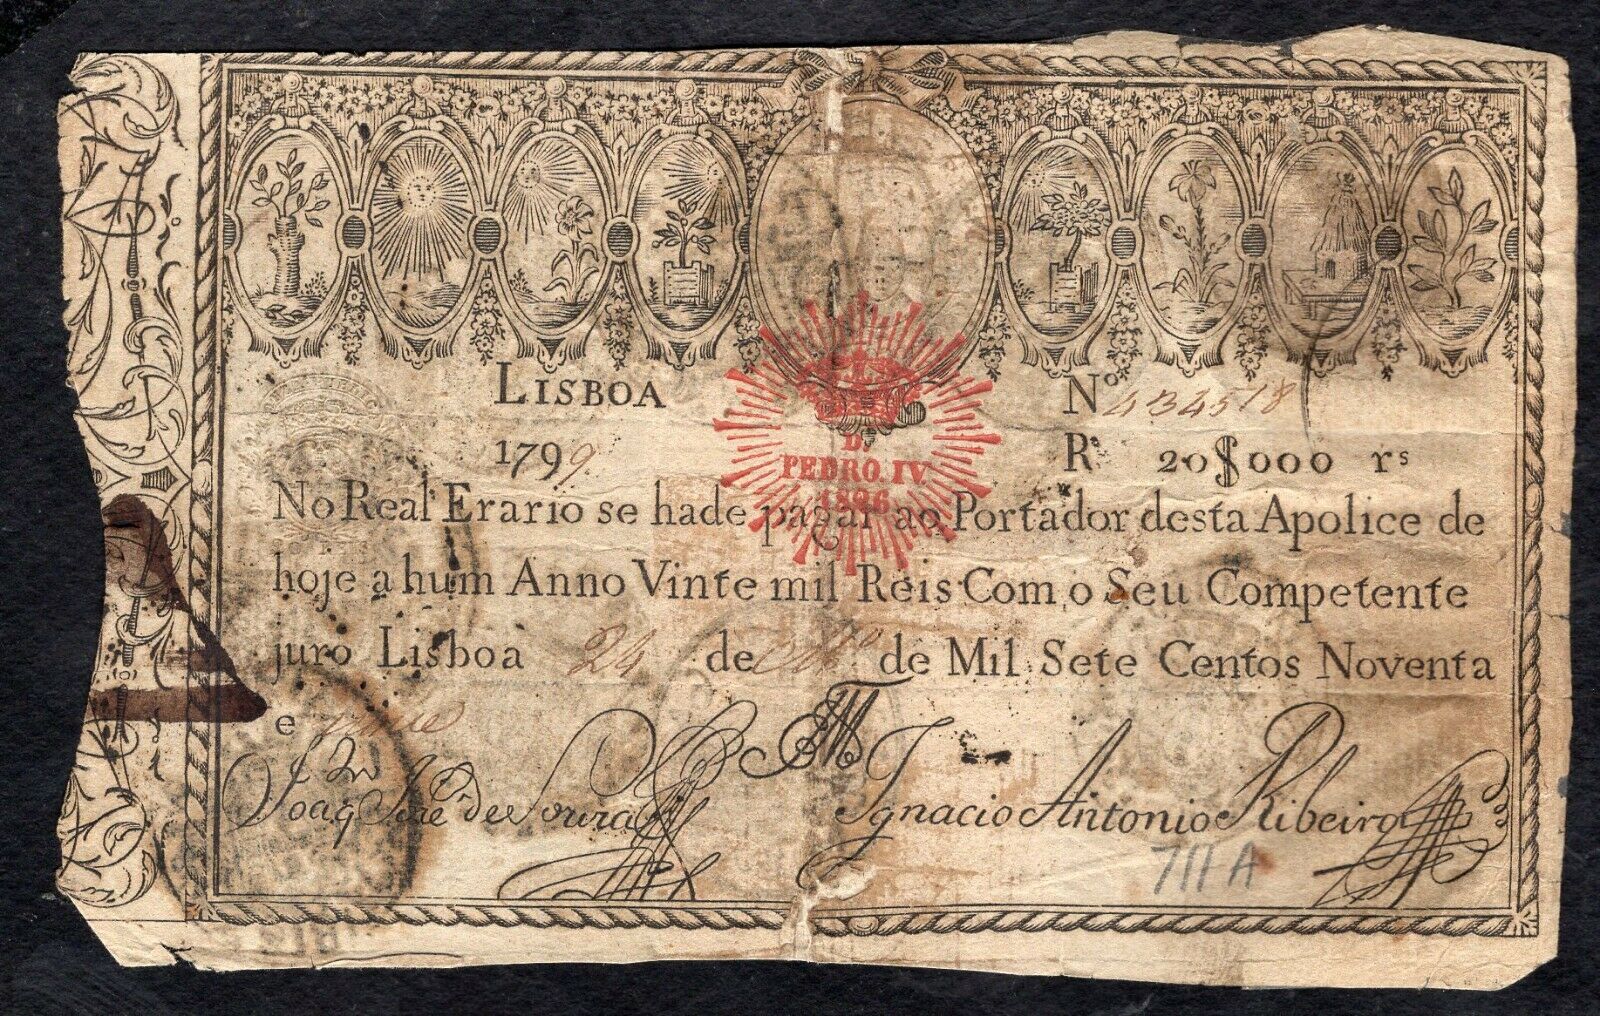 LISBOA
Nº 434518
1799
Rˢ 20$000 rˢ
D.
PEDRO. IV.
1826
No Real Erario se hade pagar ao Portador desta Apolice de
hoje a hum Anno Vinte mil Reis Com o Seu Competente
juro Lisboa 24 de de Mil Sete Centos Noventa
e nove
Joaq José de Souza
Ignacio Antonio Ribeiro
711 A